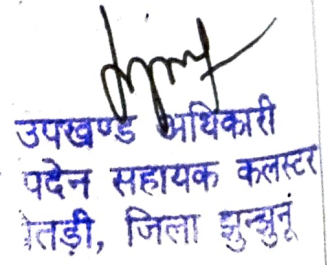 उपखण्ड अधिकारी
पदेन सहायक कलस्टर
खेतड़ी, जिला झुन्झुनूं